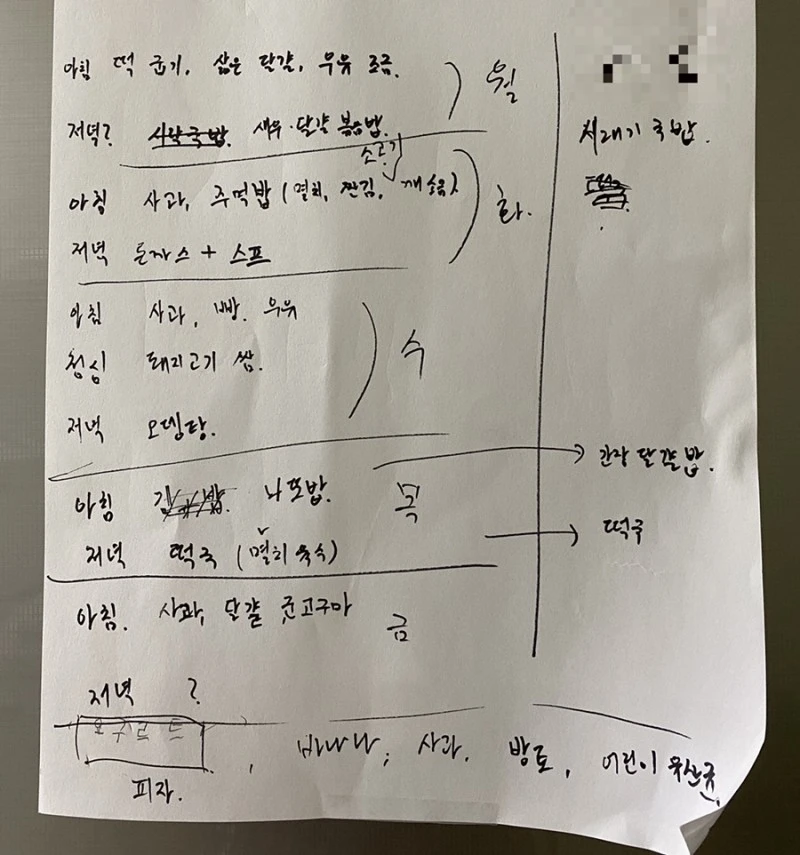 아침 떡 굽기, 삶은 달걀, 우유 조금. 월
저녁? 새우·달걀 볶음밥.
시래기 국밥.
소고기
아침 사과, 주먹밥 (멸치, 짠김, 깨소금)
화.
저녁 돈까스 + 스프
아침 사과, 빵. 우유
점심 돼지고기 쌈. 수
저녁 오뎅탕.
간장 달걀밥.
아침 나또밥. 목
저녁 떡국 (멸치 육수)
떡국
아침. 사과, 달걀 군고구마
금
저녁 ?
요구르트, 바나나, 사과. 방토, 어린이 유산균.
피자.